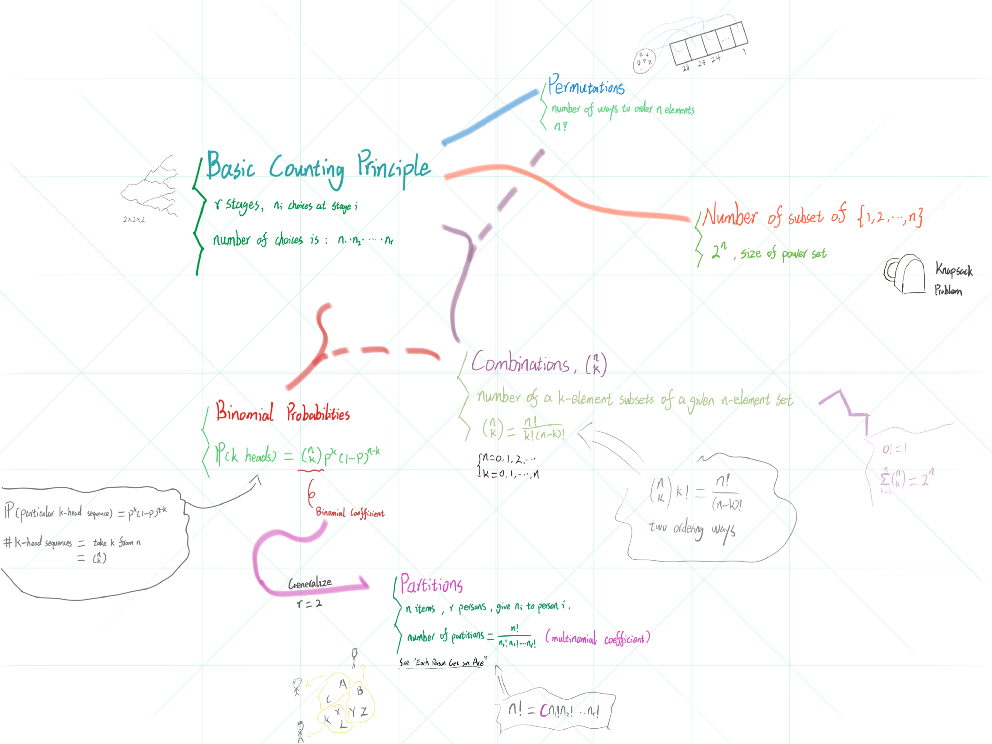 Permutations
number of ways to order n elements
n!
28 24 24 1
Basic Counting Principle
r stages, nᵢ choices at stage i
number of choices is: n₁·n₂·····nᵣ
2×2×2
Number of subset of {1,2,...,n}
2ⁿ, size of power set
Knapsack
Problem
Combinations, (n k)
number of a k-element subsets of a given n-element set
(n k) = n!/k!(n-k)!
n=0,1,2,...
k=0,1,...,n
0! = 1
Σ(n k) = 2ⁿ
(n k) k! = n!/(n-k)!
two ordering ways
Binomial Probabilities
P(k heads) = (n k) pᵏ(1-p)ⁿ⁻ᵏ
Binomial Coefficient
P(particular k-head sequence) = pᵏ(1-p)ⁿ⁻ᵏ
# k-head sequences = take k from n
= (n k)
Generalize
r=2
Partitions
n items, r persons, give nᵢ to person i.
number of partitions = n!/n₁!n₂!...nᵣ! (multinomial coefficient)
See "Each Person Gets an Ace"
A
C B
K X Y Z
L
n! = C n₁!n₂!...nᵣ!